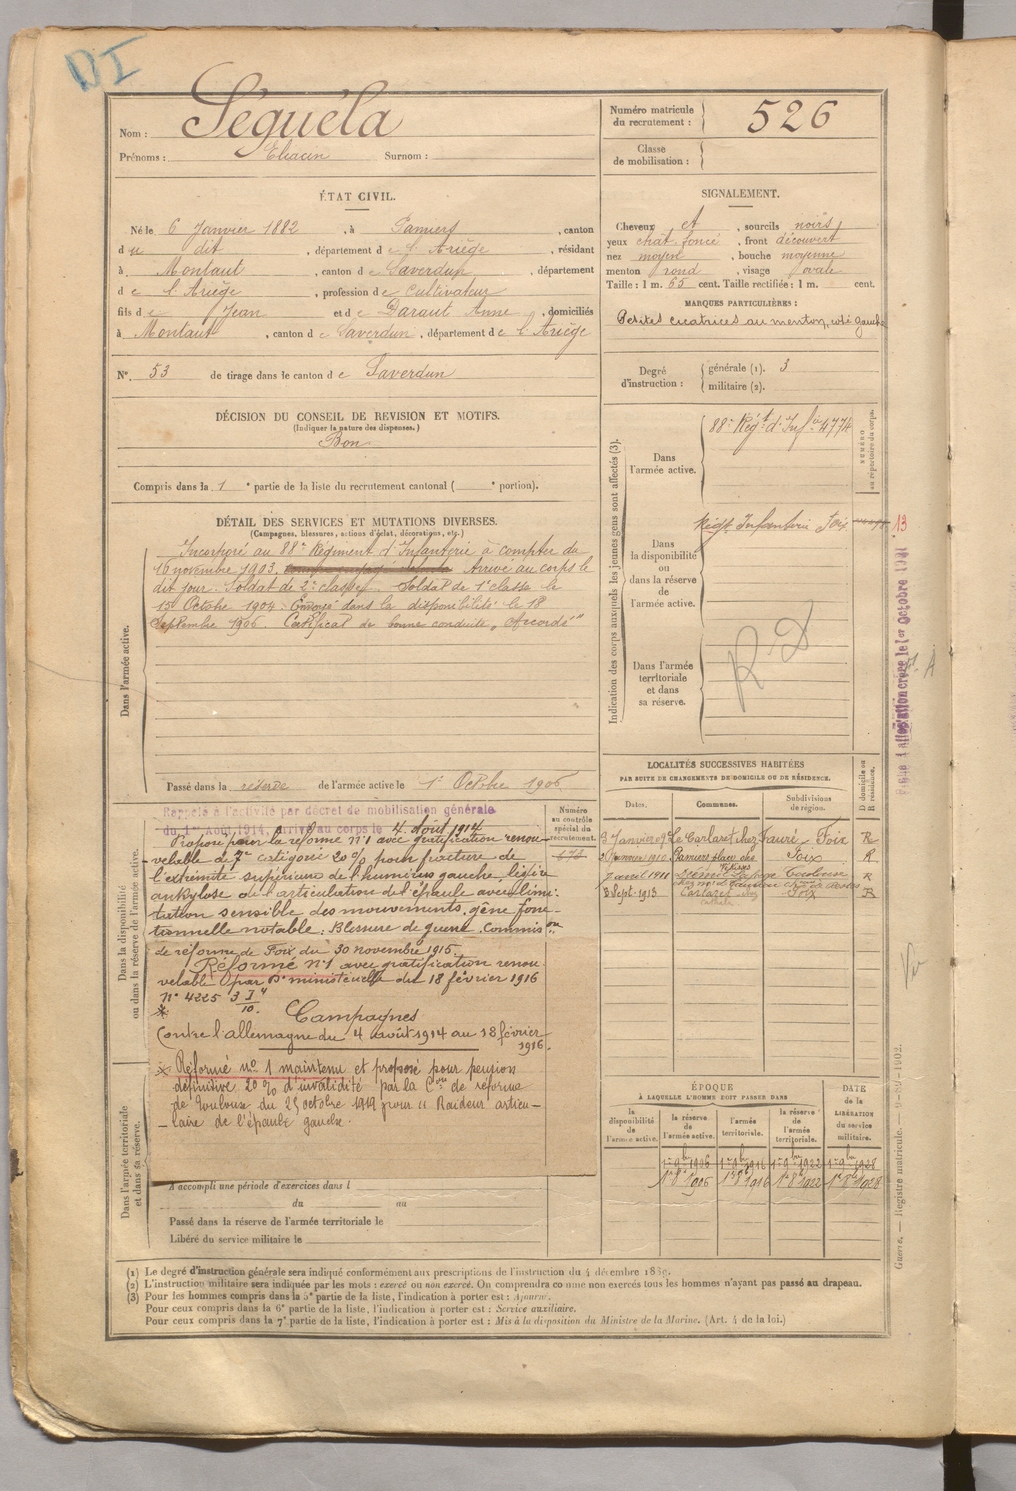 DI
Nom : Séguéla
Prénoms : Eliacin Surnom :
Numéro matricule du recrutement : 526
Classe de mobilisation :
ÉTAT CIVIL.
Né le 6 Janvier 1882, à Pamiers, canton
du dit, département de l'Ariège, résidant
à Montaut, canton de Saverdun, département
de l'Ariège, profession de Cultivateur
fils de Jean et de Daraut Anne, domiciliés
à Montaut, canton de Saverdun, département de l'Ariège
N° 53 de tirage dans le canton de Saverdun
SIGNALEMENT.
Cheveux et, sourcils noirs
yeux chat. foncé, front découvert
nez moyen, bouche moyenne
menton rond, visage ovale
Taille : 1 m. 65 cent. Taille rectifiée : 1 m. cent.
MARQUES PARTICULIÈRES :
Petites cicatrices au menton, côté gauche
Degré d'instruction : générale (1). 3
militaire (2).
DÉCISION DU CONSEIL DE REVISION ET MOTIFS.
(Indiquer la nature des dispenses.)
Bon
Compris dans la 1e partie de la liste du recrutement cantonal ( e portion).
DÉTAIL DES SERVICES ET MUTATIONS DIVERSES.
(Campagnes, blessures, actions d'éclat, décorations, etc.)
Dans l'armée active.
Incorporé au 88e Régiment d'Infanterie à compter du
16 novembre 1903. Arrivé au corps le
dit jour. Soldat de 2e classe. Soldat de 1e classe le
15 Octobre 1904. Envoyé dans la disponibilité le 18
Septembre 1906. Certificat de bonne conduite "Accordé"
Passé dans la réserve de l'armée active le 1er Octobre 1906
Indication des corps auxquels les jeunes gens sont affectés (3).
NUMÉRO au répertoire du corps.
Dans l'armée active.
88e Régt d'Infie 4774
Dans la disponibilité ou dans la réserve de l'armée active.
Régt Infanterie Foix
13
Dans l'armée territoriale et dans sa réserve.
R D
Dans la disponibilité ou dans la réserve de l'armée active.
Rappelé à l'activité par décret de mobilisation générale
du 1er Août 1914, arrivé au corps le 4 Août 1914
Proposé pour la réforme n°1 avec gratification renou-
velable de 7e catégorie 20% pour fracture de
l'extrémité supérieure de l'humérus gauche, légère
ankylose de l'articulation de l'épaule avec limi-
tation sensible des mouvements, gêne fonc-
tionnelle notable : Blessure de guerre. Commis on
de réforme de Foix du 30 novembre 1915.
Réformé n°1 avec gratification renou-
velable par Don ministérielle du 18 février 1916
n° 4225
Campagnes
Contre l'allemagne du 4 août 1914 au 18 février
1916.
Réformé n° 1 maintenu et proposé pour pension
définitive 20% d'invalidité par la Con de réforme
de Toulouse du 25 octobre 1919 pour "Raideur articu-
-laire de l'épaule gauche.
Numéro au contrôle spécial du recrutement.
Dans l'armée territoriale et dans sa réserve.
A accompli une période d'exercices dans l
du au
Passé dans la réserve de l'armée territoriale le
Libéré du service militaire le
LOCALITÉS SUCCESSIVES HABITÉES
PAR SUITE DE CHANGEMENTS DE DOMICILE OU DE RÉSIDENCE.
Dates. Communes. Subdivisions de région. D domicile ou R résidence.
3 Janvier 09 Le Carlaret chez Fauré Foix R
Janvier 1910 Pamiers Foix R
7 avril 1911
3 Sept. 1913 Carlaret Foix R
ÉPOQUE
À LAQUELLE L'HOMME DOIT PASSER DANS
la disponibilité de l'armée active. la réserve de l'armée active. l'armée territoriale. la réserve de l'armée territoriale. DATE de la LIBÉRATION du service militaire.
1er 9bre 1906 1er 9bre 1916 1er 9bre 1922 1er 9bre 1928
1er 8bre 1906 1er 8bre 1916 1er 8bre 1922 1er 8bre 1928
(1) Le degré d'instruction générale sera indiqué conformément aux prescriptions de l'instruction du 4 décembre 1889.
(2) L'instruction militaire sera indiquée par les mots : exercé ou non exercé. On comprendra comme non exercés tous les hommes n'ayant pas passé au drapeau.
(3) Pour les hommes compris dans la 5e partie de la liste, l'indication à porter est : Ajourné.
Pour ceux compris dans la 6e partie de la liste, l'indication à porter est : Service auxiliaire.
Pour ceux compris dans la 7e partie de la liste, l'indication à porter est : Mis à la disposition du Ministre de la Marine. (Art. 4 de la loi.)
Guerre. — Registre matricule. — 9-89-1902.